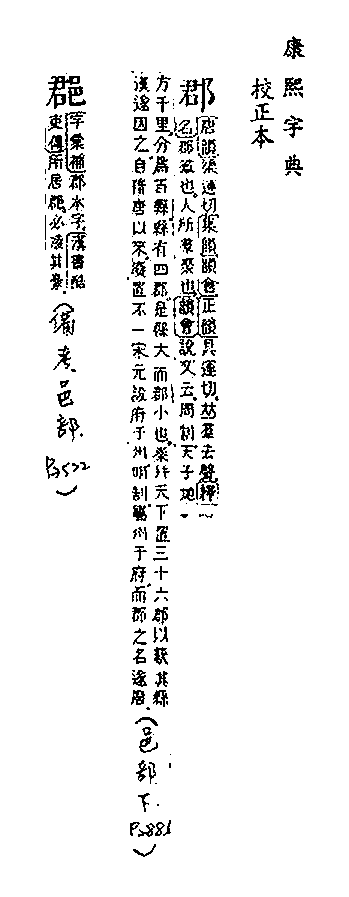 康熙字典
校正本
郡 唐韻渠運切集韻韻會正韻具運切𠀤羣去聲釋
名郡羣也人所羣聚也韻會說文云周制天子地
方千里分爲百縣縣有四郡是縣大而郡小也秦幷天下置三十六郡以監其縣
漢遂因之自隋唐以來廢置不一宋元設府于州明制屬州于府而郡之名遂廢
(邑部下 P.881)
字彙補郡本字漢書酷
吏傳所居郡必夷其豪
(備考邑部 P.522)